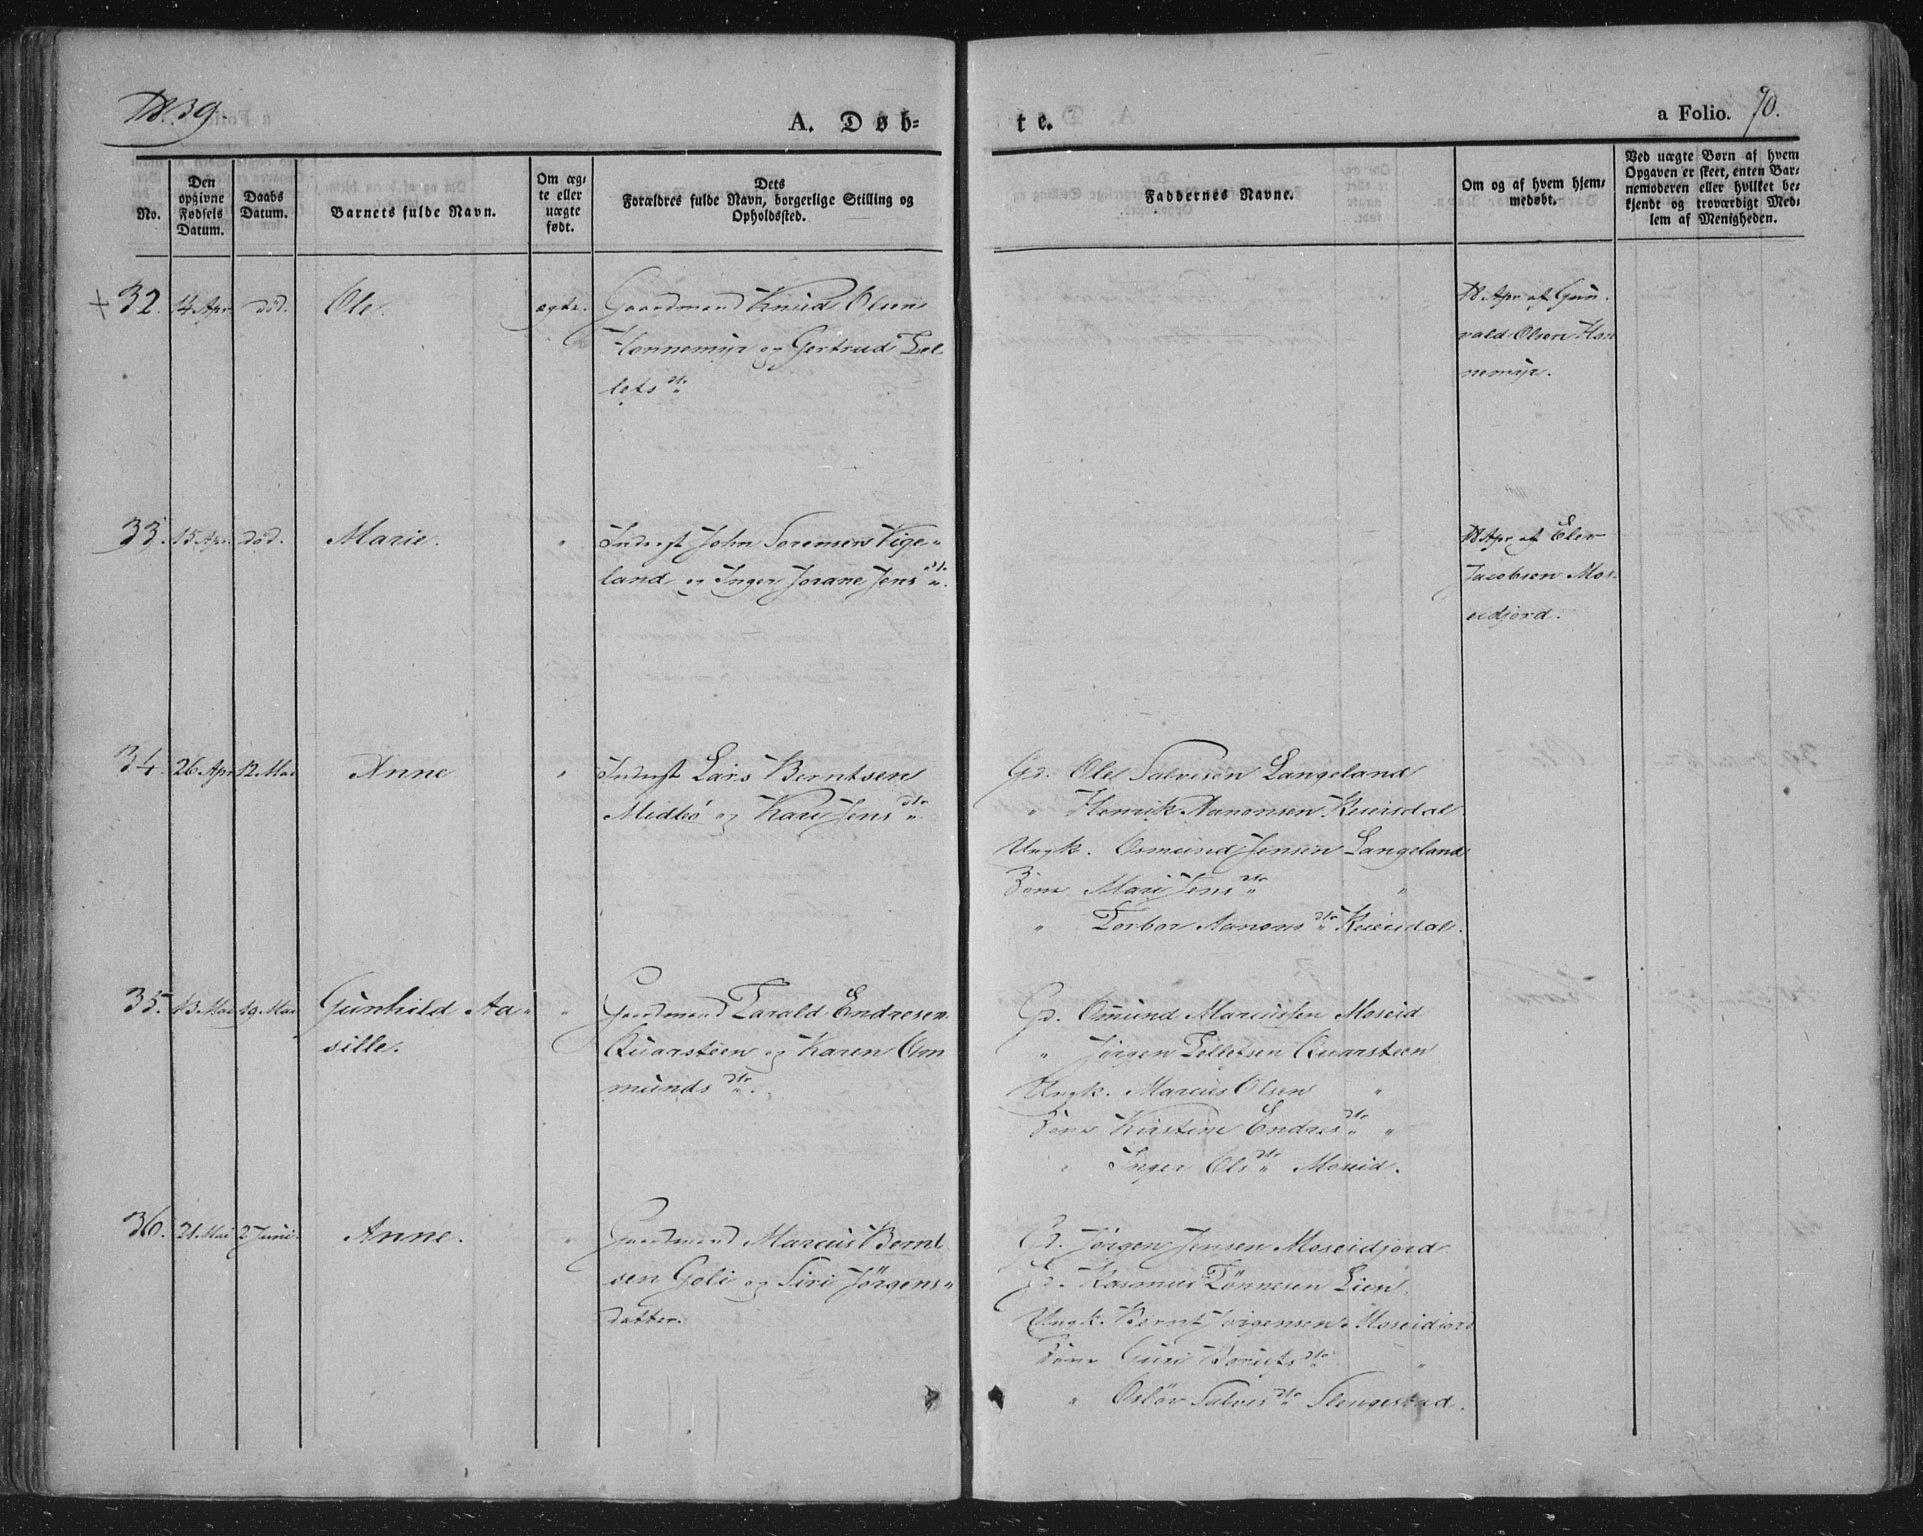 1839
A. Døb-
te.
a Folio. 70.
No.
Den
opgivne
Fødsels
Datum.
Daabs
Datum.
Barnets fulde Navn.
Om æg-
te eller
uægte
født.
Dets
Forældres fulde Navn, borgerlige Stilling og
Opholdssted.
Faddernes Navne.
Om og af hvem hjem-
medøbt.
Ved uægte Børn af hvem
Opgaven er skeet, enten Bar-
nemoderen eller hvilket be-
kjendt og troværdigt Med-
lem af Menigheden.
+ 32. 14 Apr. død. Ole. ægte. Gaardmand Knud Olsen
Honnemyr og Gertrud Tel
lefs dtr
18 Apr. af Gun-
vald Olsen Hon
nemyr.
33. 15 Apr. død. Marie. " Inderst John Sørensen Vige-
land og Inger Jorane Jens dtr.
18 Apr. af Eler
Jacobsen Mos-
eidjord.
34. 26 Apr 12 Mai Anne " Inderst Lars Berntsen
Midtbö og Kari Jens dtr.
Gd. Ole Salvesen Langeland
" Henrik Aanonsen Reiersdal
Ungk. Osmund Jensen Langeland
Pige Mari Jens dtr "
" Torbor Aanons dtr Reiersdal.
35. 13 Mai 19 Mai Gunhild Aa-
sille. " Gaardmand Tarald Endresen
Quarsteen og Karen Os
munds dtr.
Gd. Osmund Marcussen Moseid
" Jørgen Tellefsen Quarsteen
Ungk. Marcus Olsen "
Pige Kirstine Endres dtr "
" Inger Ols dtr Moseid.
36. 21 Mai 2 Juni. Anne. " Gaardmand Marcus Bernt
sen Goli og Siri Jörgens-
datter.
Gd. Jörgen Jensen Moseidjord
Gd. Rasmus Tönnesen Lien.
Ungk. Bernt Jörgensen Moseidjord
Pige Guri Bernts dtr "
" Oslöv Salves dtr Slengestad.